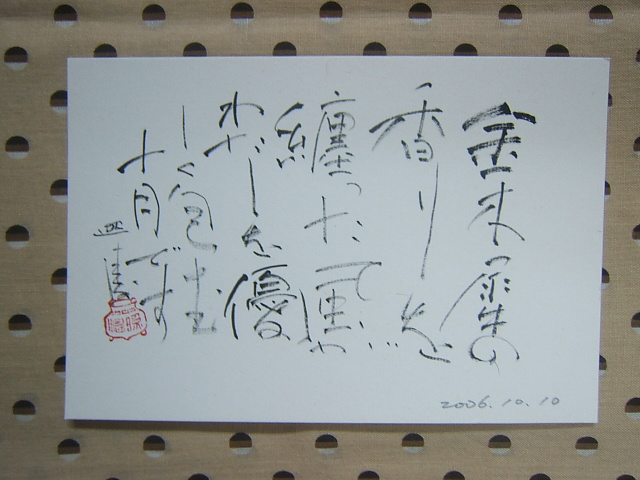 金木犀の
香りを
纏った風が
わたしを優
しく包む
十月です
2006.10.10